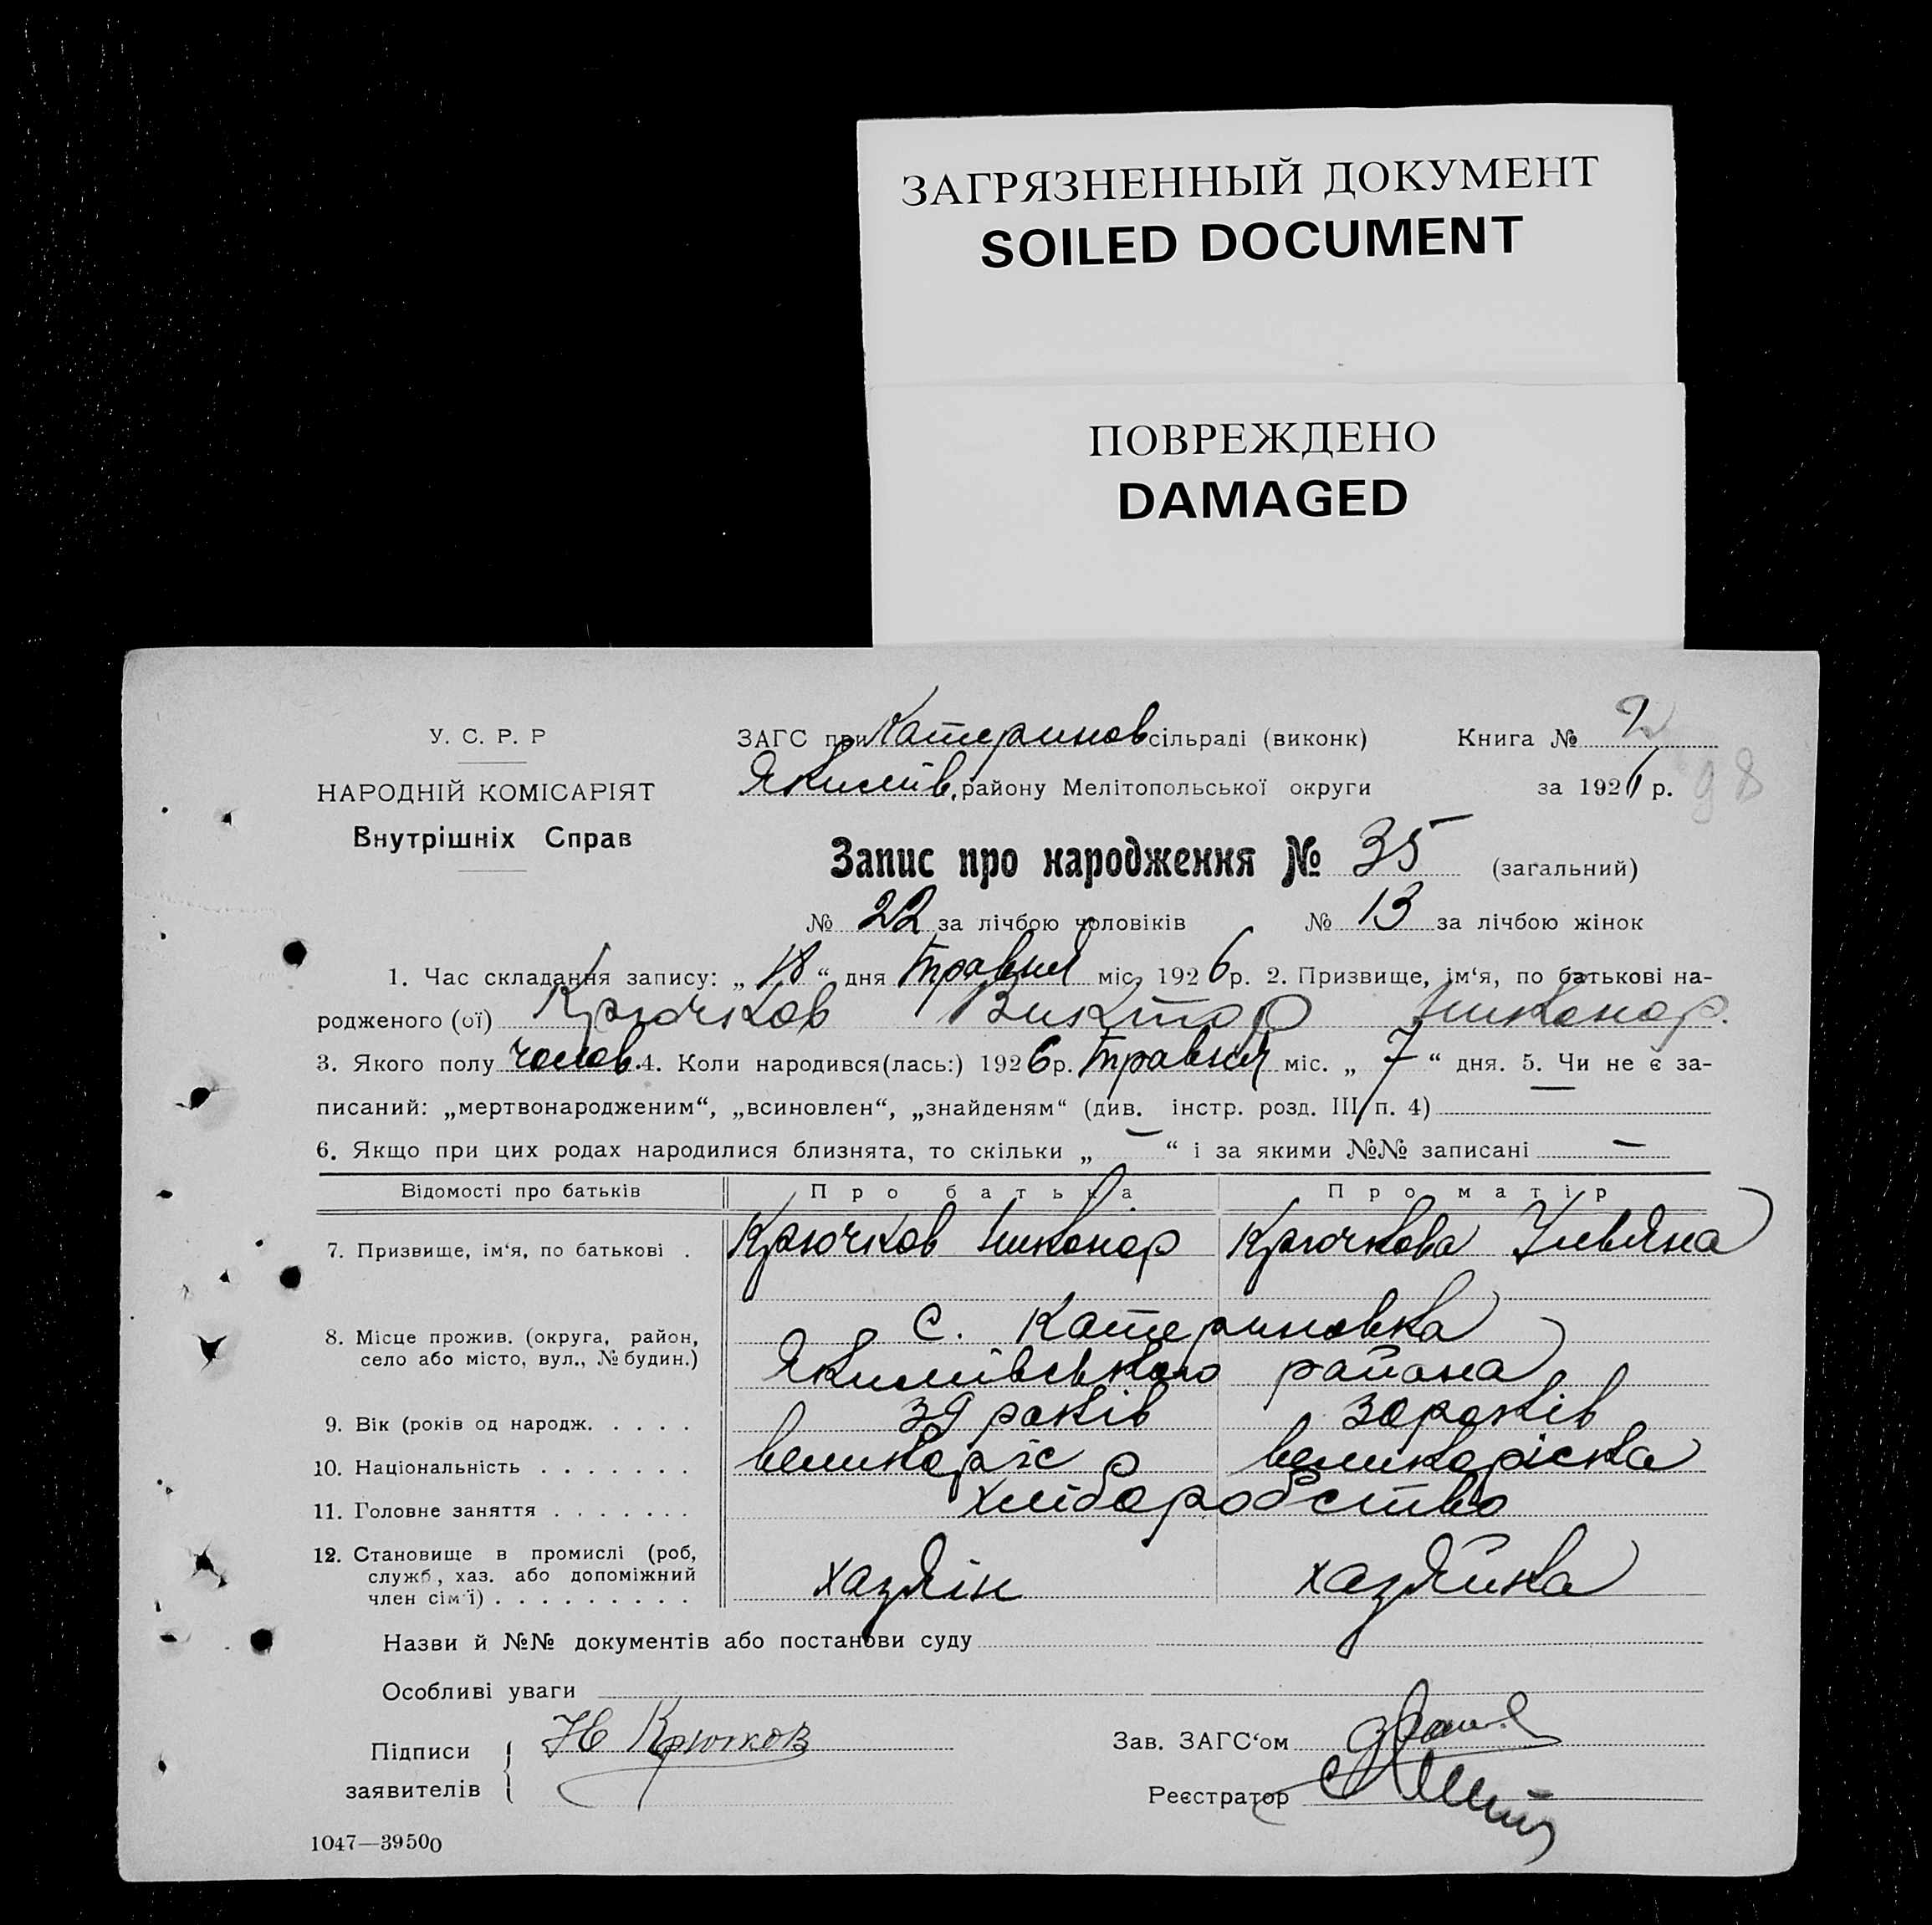 ЗАГРЯЗНЕННЫЙ ДОКУМЕНТ
SOILED DOCUMENT
ПОВРЕЖДЕНО
DAMAGED
У. С. Р. Р
НАРОДНІЙ КОМІСАРІЯТ
Внутрішніх Справ
ЗАГС при Катеринов сільраді (виконк)
Книга № 2
Якимів. району Мелітопольської округи
за 1926 р. 98
Запис про народження № 35 (загальний)
№ 22 за лічбою чоловіків № 13 за лічбою жінок
1. Час складання запису: „ 18 “ дня травня міс. 1926 р. 2. Призвище, ім‘я, по батькові на-
родженого (ої) Крючков Виктор Никонор.
3. Якого полу чолов. 4. Коли народився(лась:) 1926 р. травня міс. „ 7 “ дня. 5. Чи не є за-
писаний: „мертвонародженим“, „всиновлен“, „знайденям“ (див. інстр. розд. III, п. 4) —
6. Якщо при цих родах народилися близнята, то скільки „ — “ і за якими №№ записані —
Відомості про батьків Про батька Про матір
7. Призвище, ім‘я, по батькові . Крючков Никонор Крючкова Ульяна
8. Місце прожив. (округа, район, с. Катериновка
село або місто, вул., № будин.) Якимівського района
9. Вік (років од народж. . . . . 39 років 30 років
10. Національність . . . . . . . великоріс великоріска
11. Головне заняття . . . . . . . хліборобство
12. Становище в промислі (роб,
служб, хаз. або допоміжний хазяін хазяйка
член сім‘ї) . . . . . . . . .
Назви й №№ документів або постанови суду
Особливі уваги
Підписи Н Крючков
заявителів
Зав. ЗАГС‘ом
Реєстратор
1047—39500